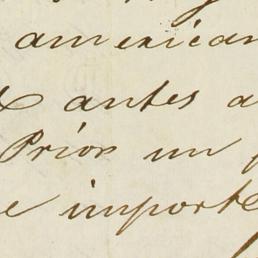 american
antes a
Prior un
e importe